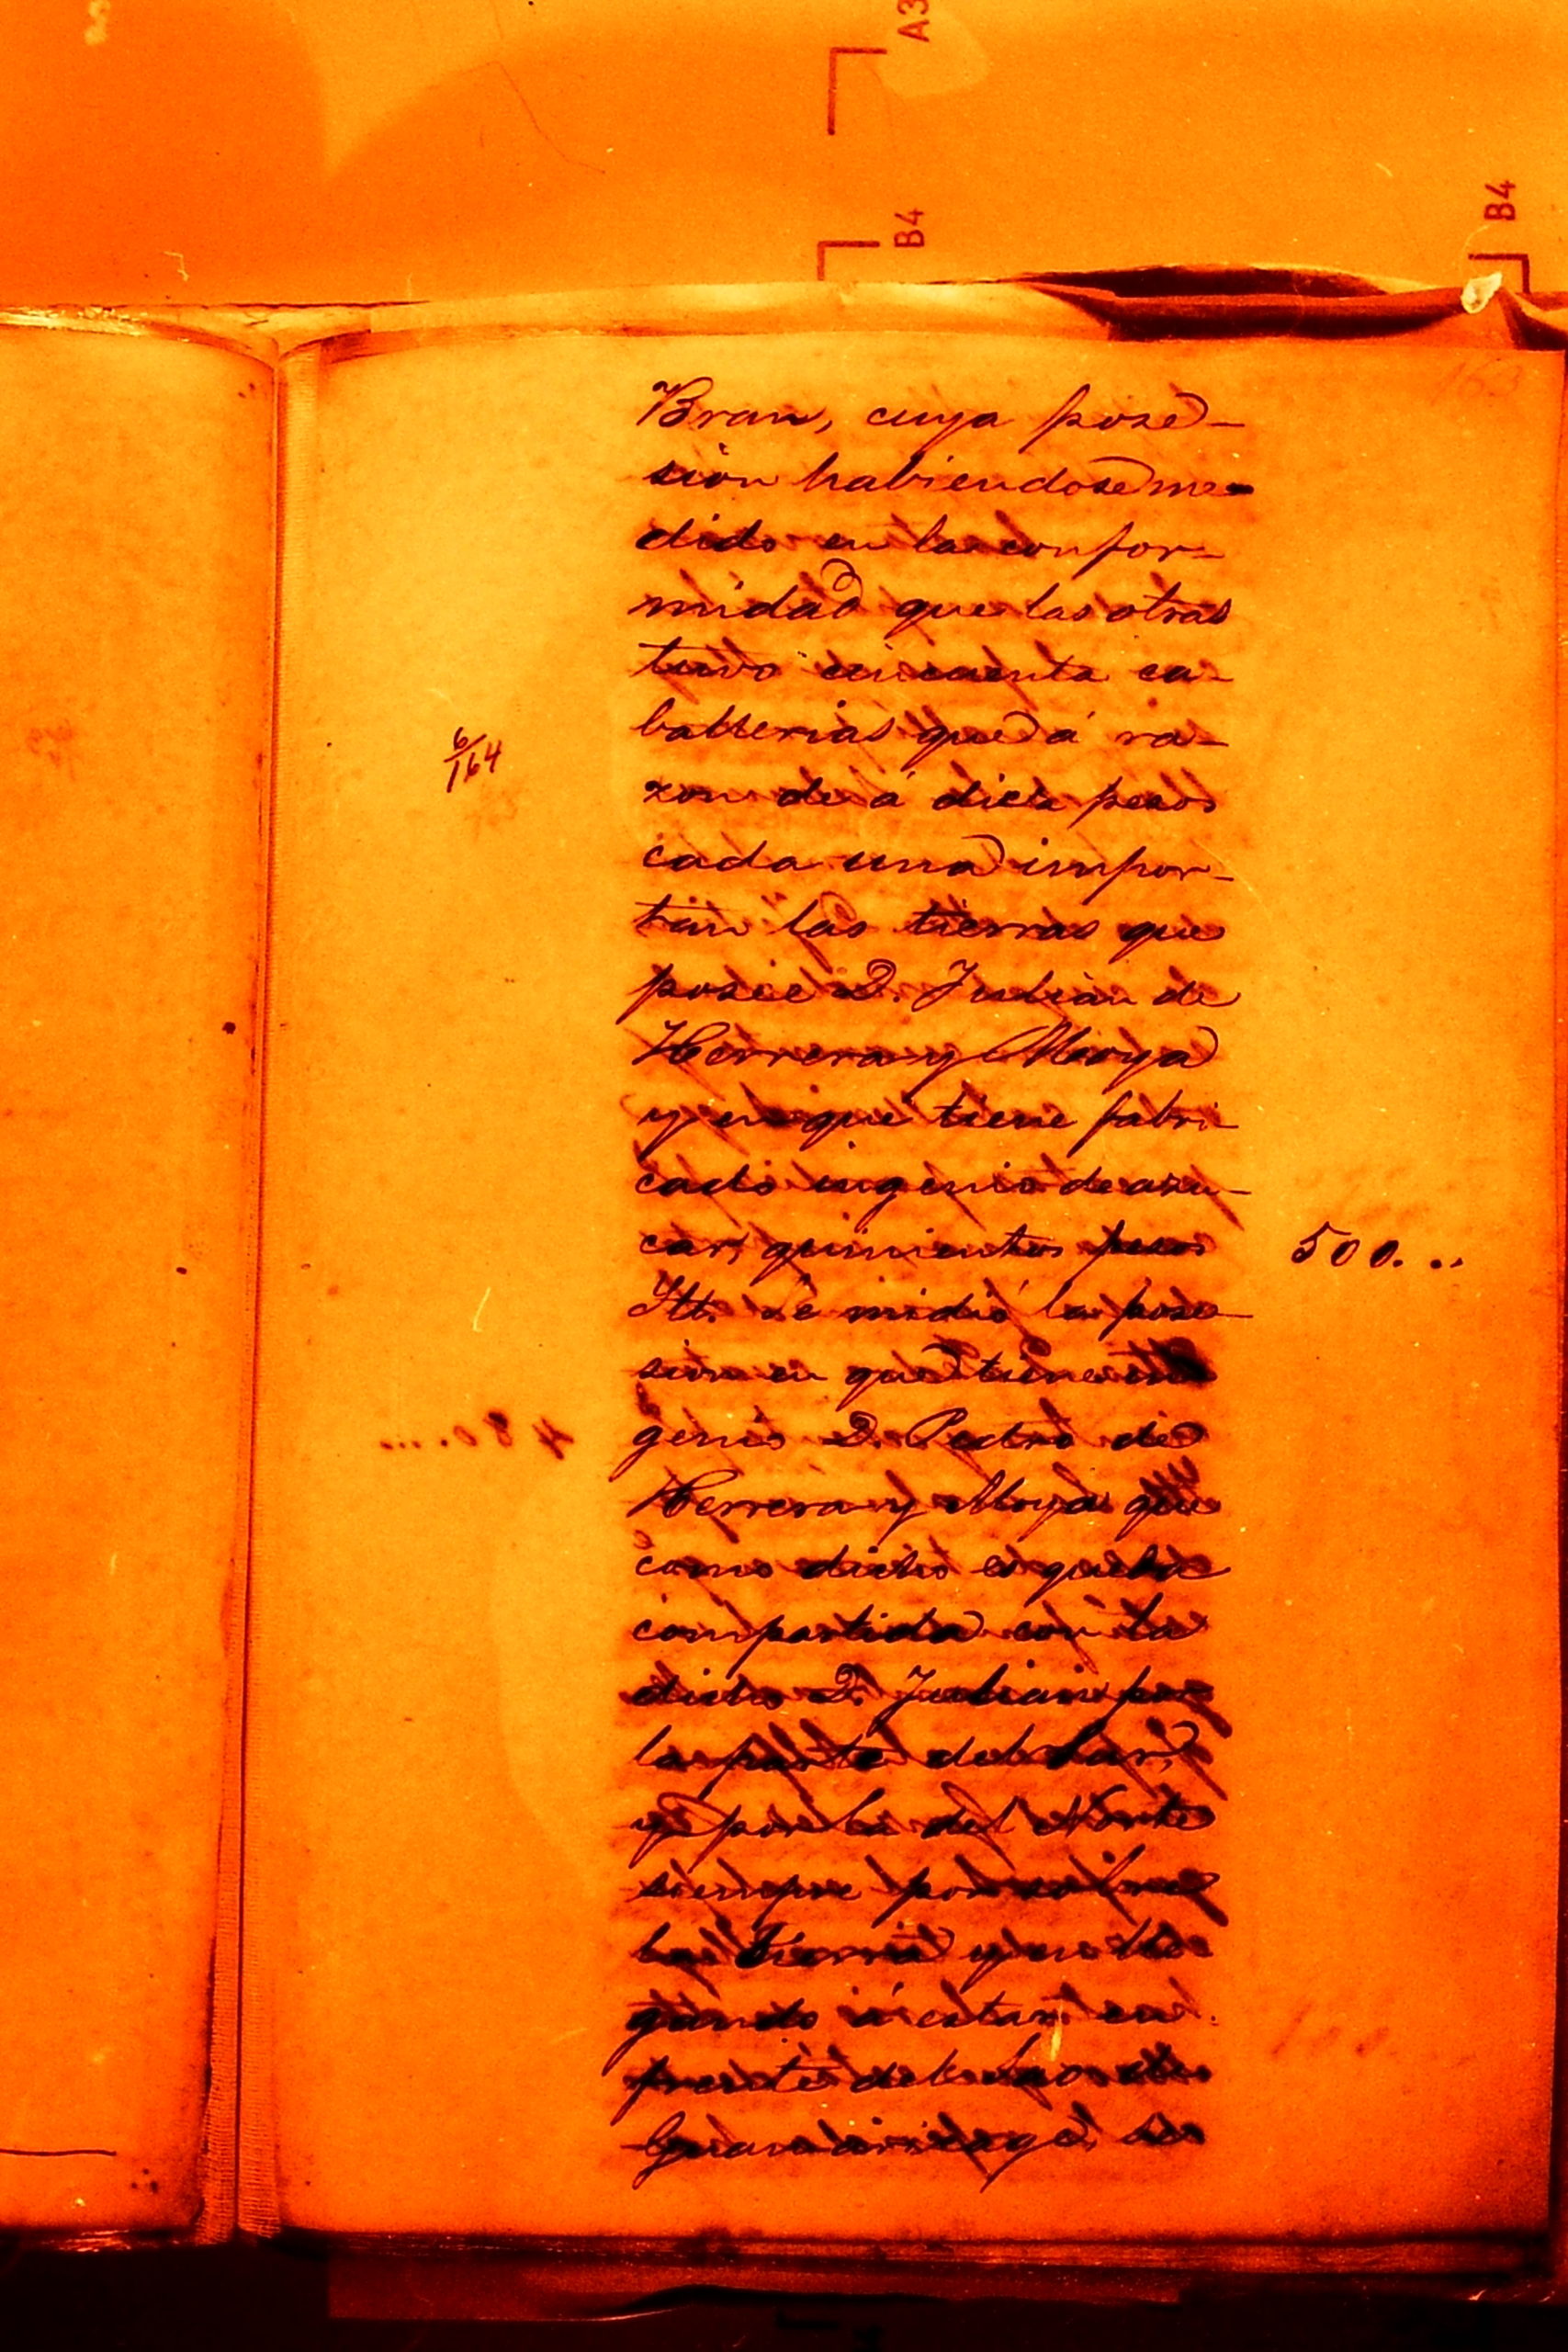 A3
B4
B4
163
Bran, cuya pose-
sion habiendose me-
dido en la confor-
midad que las otras
tuvo cincuenta ca-
ballerias que á ra-
zon de á diez pesos
cada una impor-
tan las tierras que
posee D. Julian de
Herrera y Moya
y en que tiene fabri
cado ingenio de azu-
car, quinientos pesos
500...
Itt. Se midió la pose-
sion en que tiene in
genio D. Pedro de
Herrera y Moya que
como dicho es queda
compartida con la
dicho D. Julian por
la parte del Sur,
y por la del Norte
siempre por
las tierra y
gando á estar en
frente del
Guanabirijagé, se
6/164